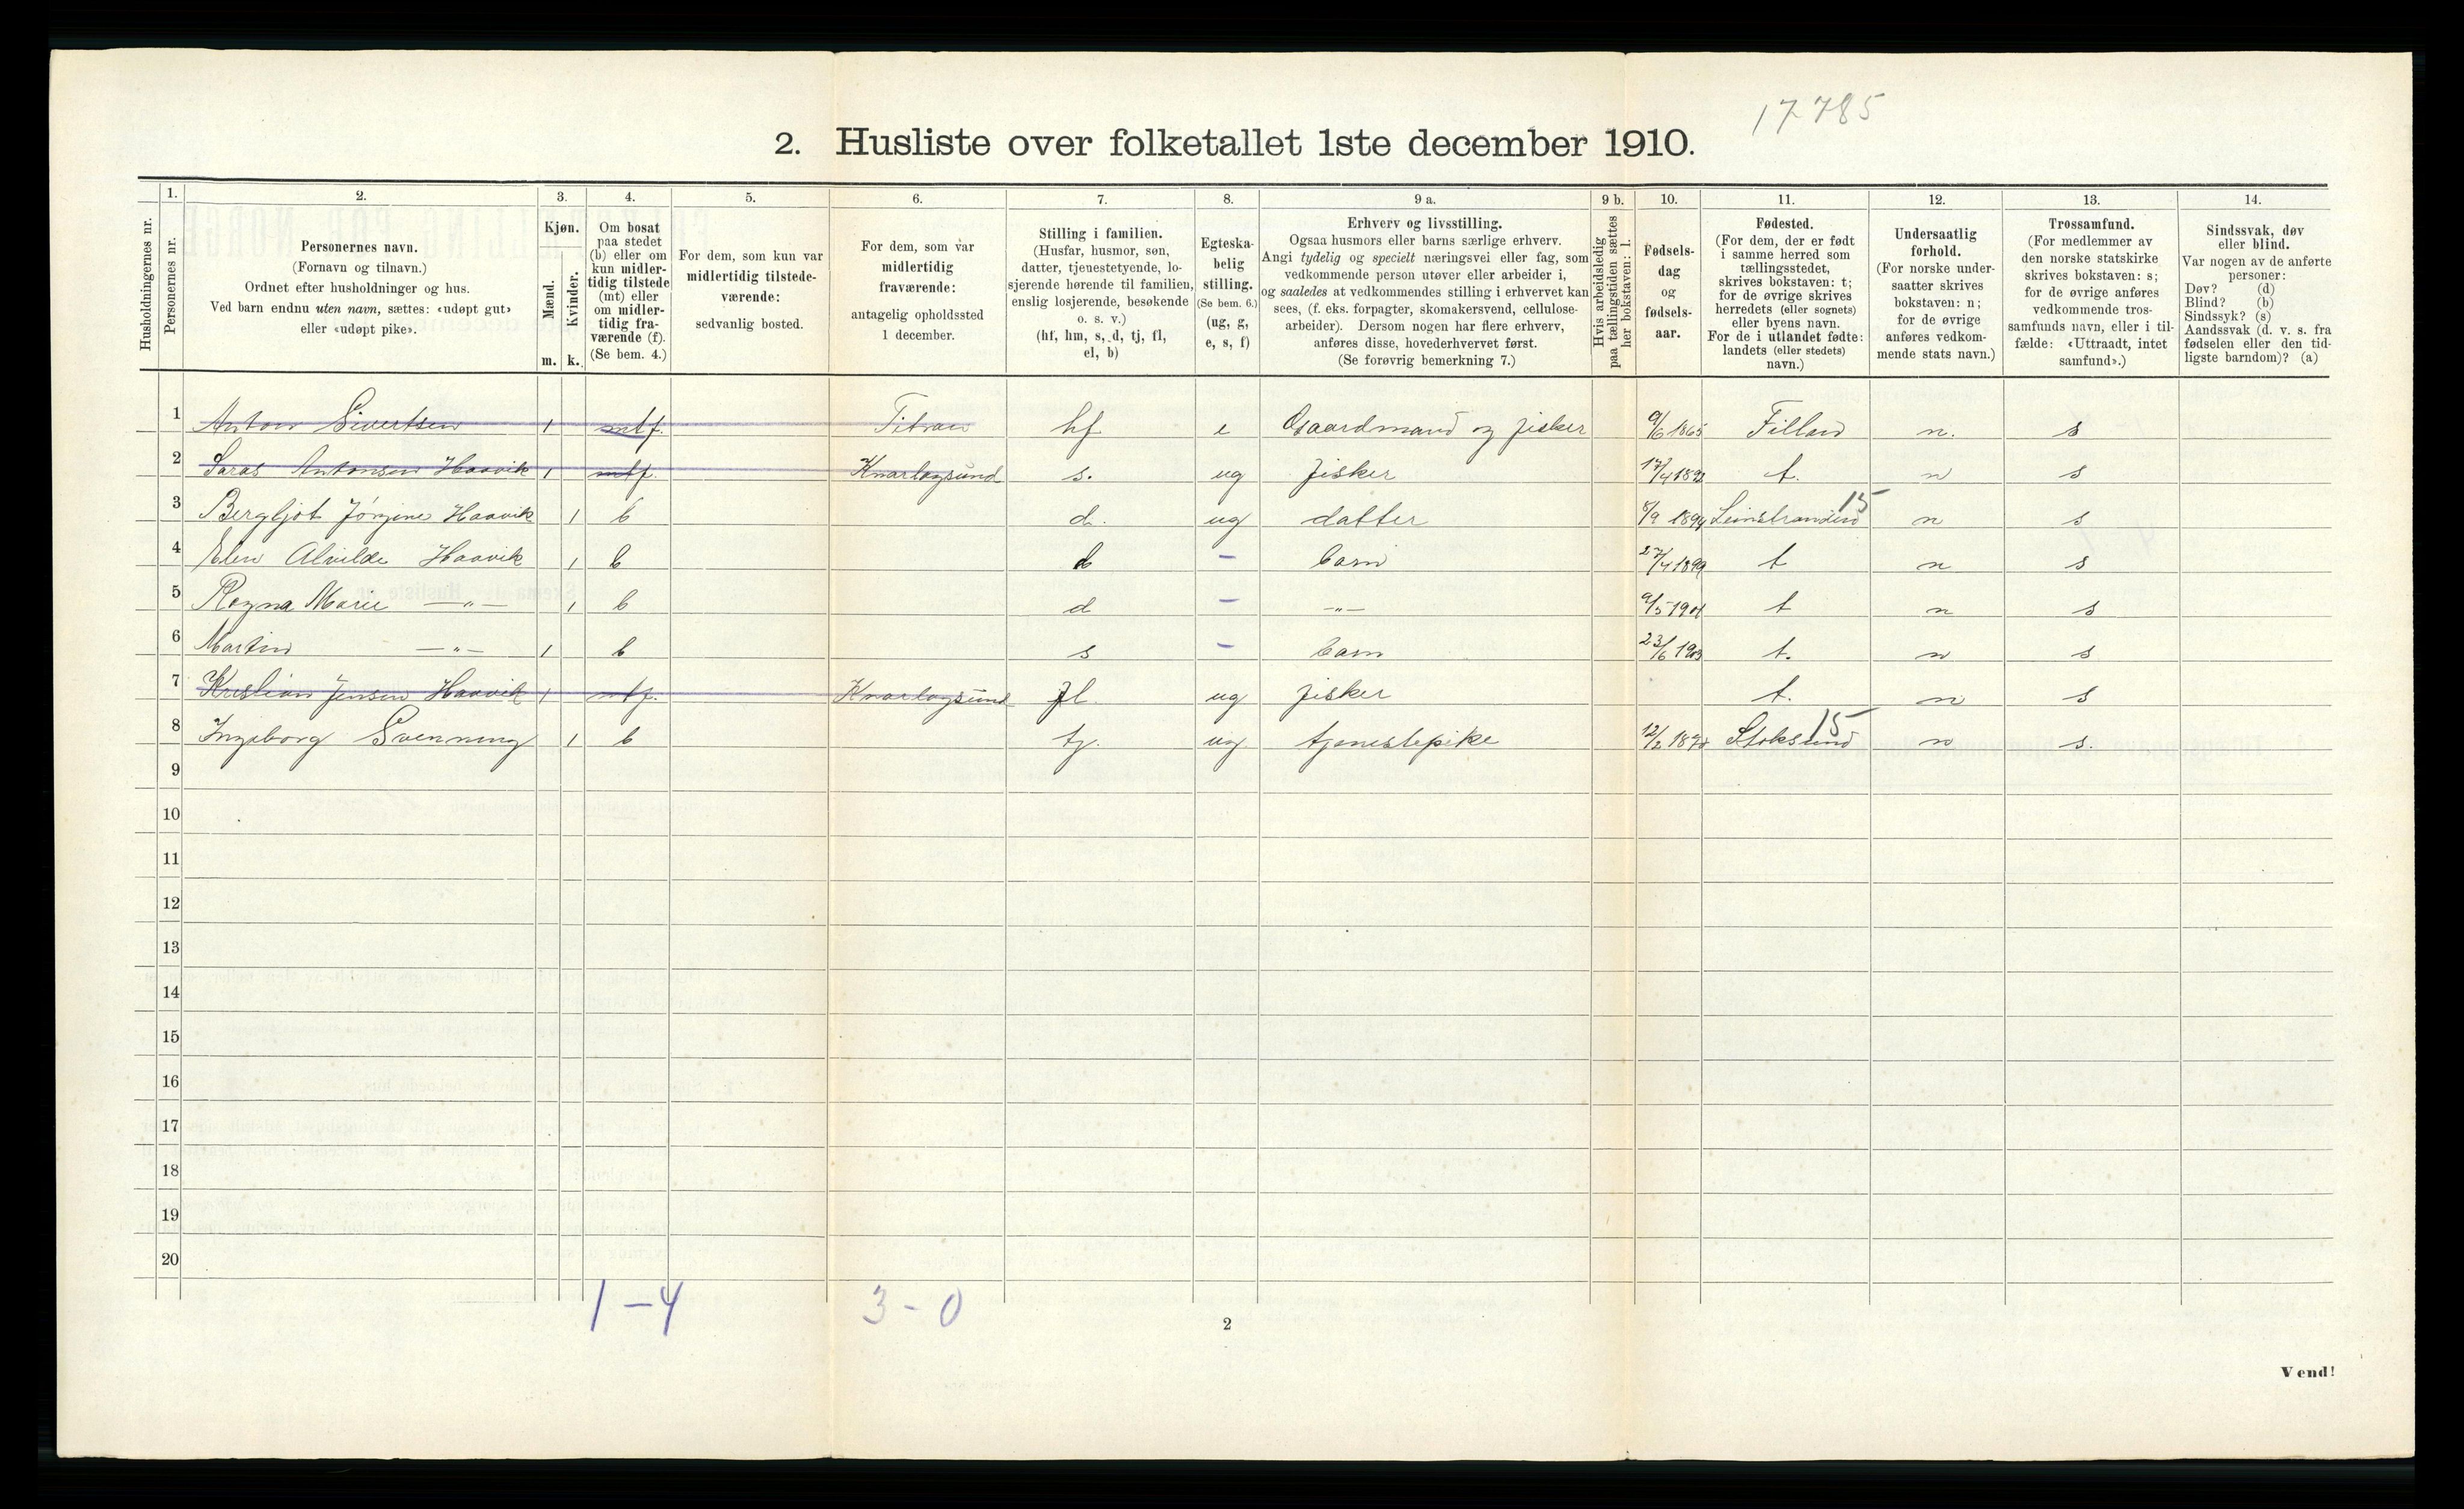 17785
2. Husliste over folketallet 1ste december 1910.
Husholdningernes nr.
1. Personernes nr.
2. Personernes navn. (Fornavn og tilnavn.) Ordnet efter husholdninger og hus. Ved barn endnu uten navn, sættes: «udøpt gut» eller «udøpt pike».
3. Kjøn. Mænd. m. Kvinder. k.
4. Om bosat paa stedet (b) eller om kun midlertidig tilstede (mt) eller om midlertidig fraværende (f). (Se bem. 4.)
5. For dem, som kun var midlertidig tilstedeværende: sedvanlig bosted.
6. For dem, som var midlertidig fraværende: antagelig opholdssted 1 december.
7. Stilling i familien. (Husfar, husmor, søn, datter, tjenestetyende, losjerende hørende til familien, enslig losjerende, besøkende o. s. v.) (hf, hm, s, d, tj, fl, el, b)
8. Egteskabelig stilling. (Se bem. 6.) (ug, g, e, s, f)
9 a. Erhverv og livsstilling. Ogsaa husmors eller barns særlige erhverv. Angi tydelig og specielt næringsvei eller fag, som vedkommende person utøver eller arbeider i, og saaledes at vedkommendes stilling i erhvervet kan sees, (f. eks. forpagter, skomakersvend, cellulosearbeider). Dersom nogen har flere erhverv, anføres disse, hovederhvervet først. (Se forøvrig bemerkning 7.)
9 b. Hvis arbeidsledig paa tællingstiden sættes her bokstaven: l.
10. Fødselsdag og fødselsaar.
11. Fødested. (For dem, der er født i samme herred som tællingsstedet, skrives bokstaven: t; for de øvrige skrives herredets (eller sognets) eller byens navn. For de i utlandet fødte: landets (eller stedets) navn.)
12. Undersaatlig forhold. (For norske undersaatter skrives bokstaven: n; for de øvrige anføres vedkommende stats navn.)
13. Trossamfund. (For medlemmer av den norske statskirke skrives bokstaven: s; for de øvrige anføres vedkommende trossamfunds navn, eller i tilfælde: «Uttraadt, intet samfund».)
14. Sindssvak, døv eller blind. Var nogen av de anførte personer: Døv? (d) Blind? (b) Sindssyk? (s) Aandssvak (d. v. s. fra fødselen eller den tidligste barndom)? (a)
1 Anton Sivertsen 1 mtf. Titran hf e Gaardmand og fisker 9/6 1865 Fillan n. s
2 Antonsen Haavik 1 mtf. Knarlagsund s. ug fisker 17/4 t. n s
3 Bergljot Jørgine Haavik 1 b d. ug datter 8/9 Leinstranden 15 n s
4 Elen Alvilde Haavik 1 b – barn 27/4 1899 t n s
5 Ragna Marie —"— 1 b d – —"— 9/5 t n s
6 Martin —"— 1 b s – barn 23/6 1903 t. n s
7 Kristian Jensen Haavik 1 mtf. Knarlagsund fl. ug fisker t. n s
8 Ingeborg Svenning 1 b tj. ug tjenestepike 12/2 Stoksund 15 n s.
9
10
11
12
13
14
15
16
17
18
19
20
1 – 4 3 - 0
2
Vend!